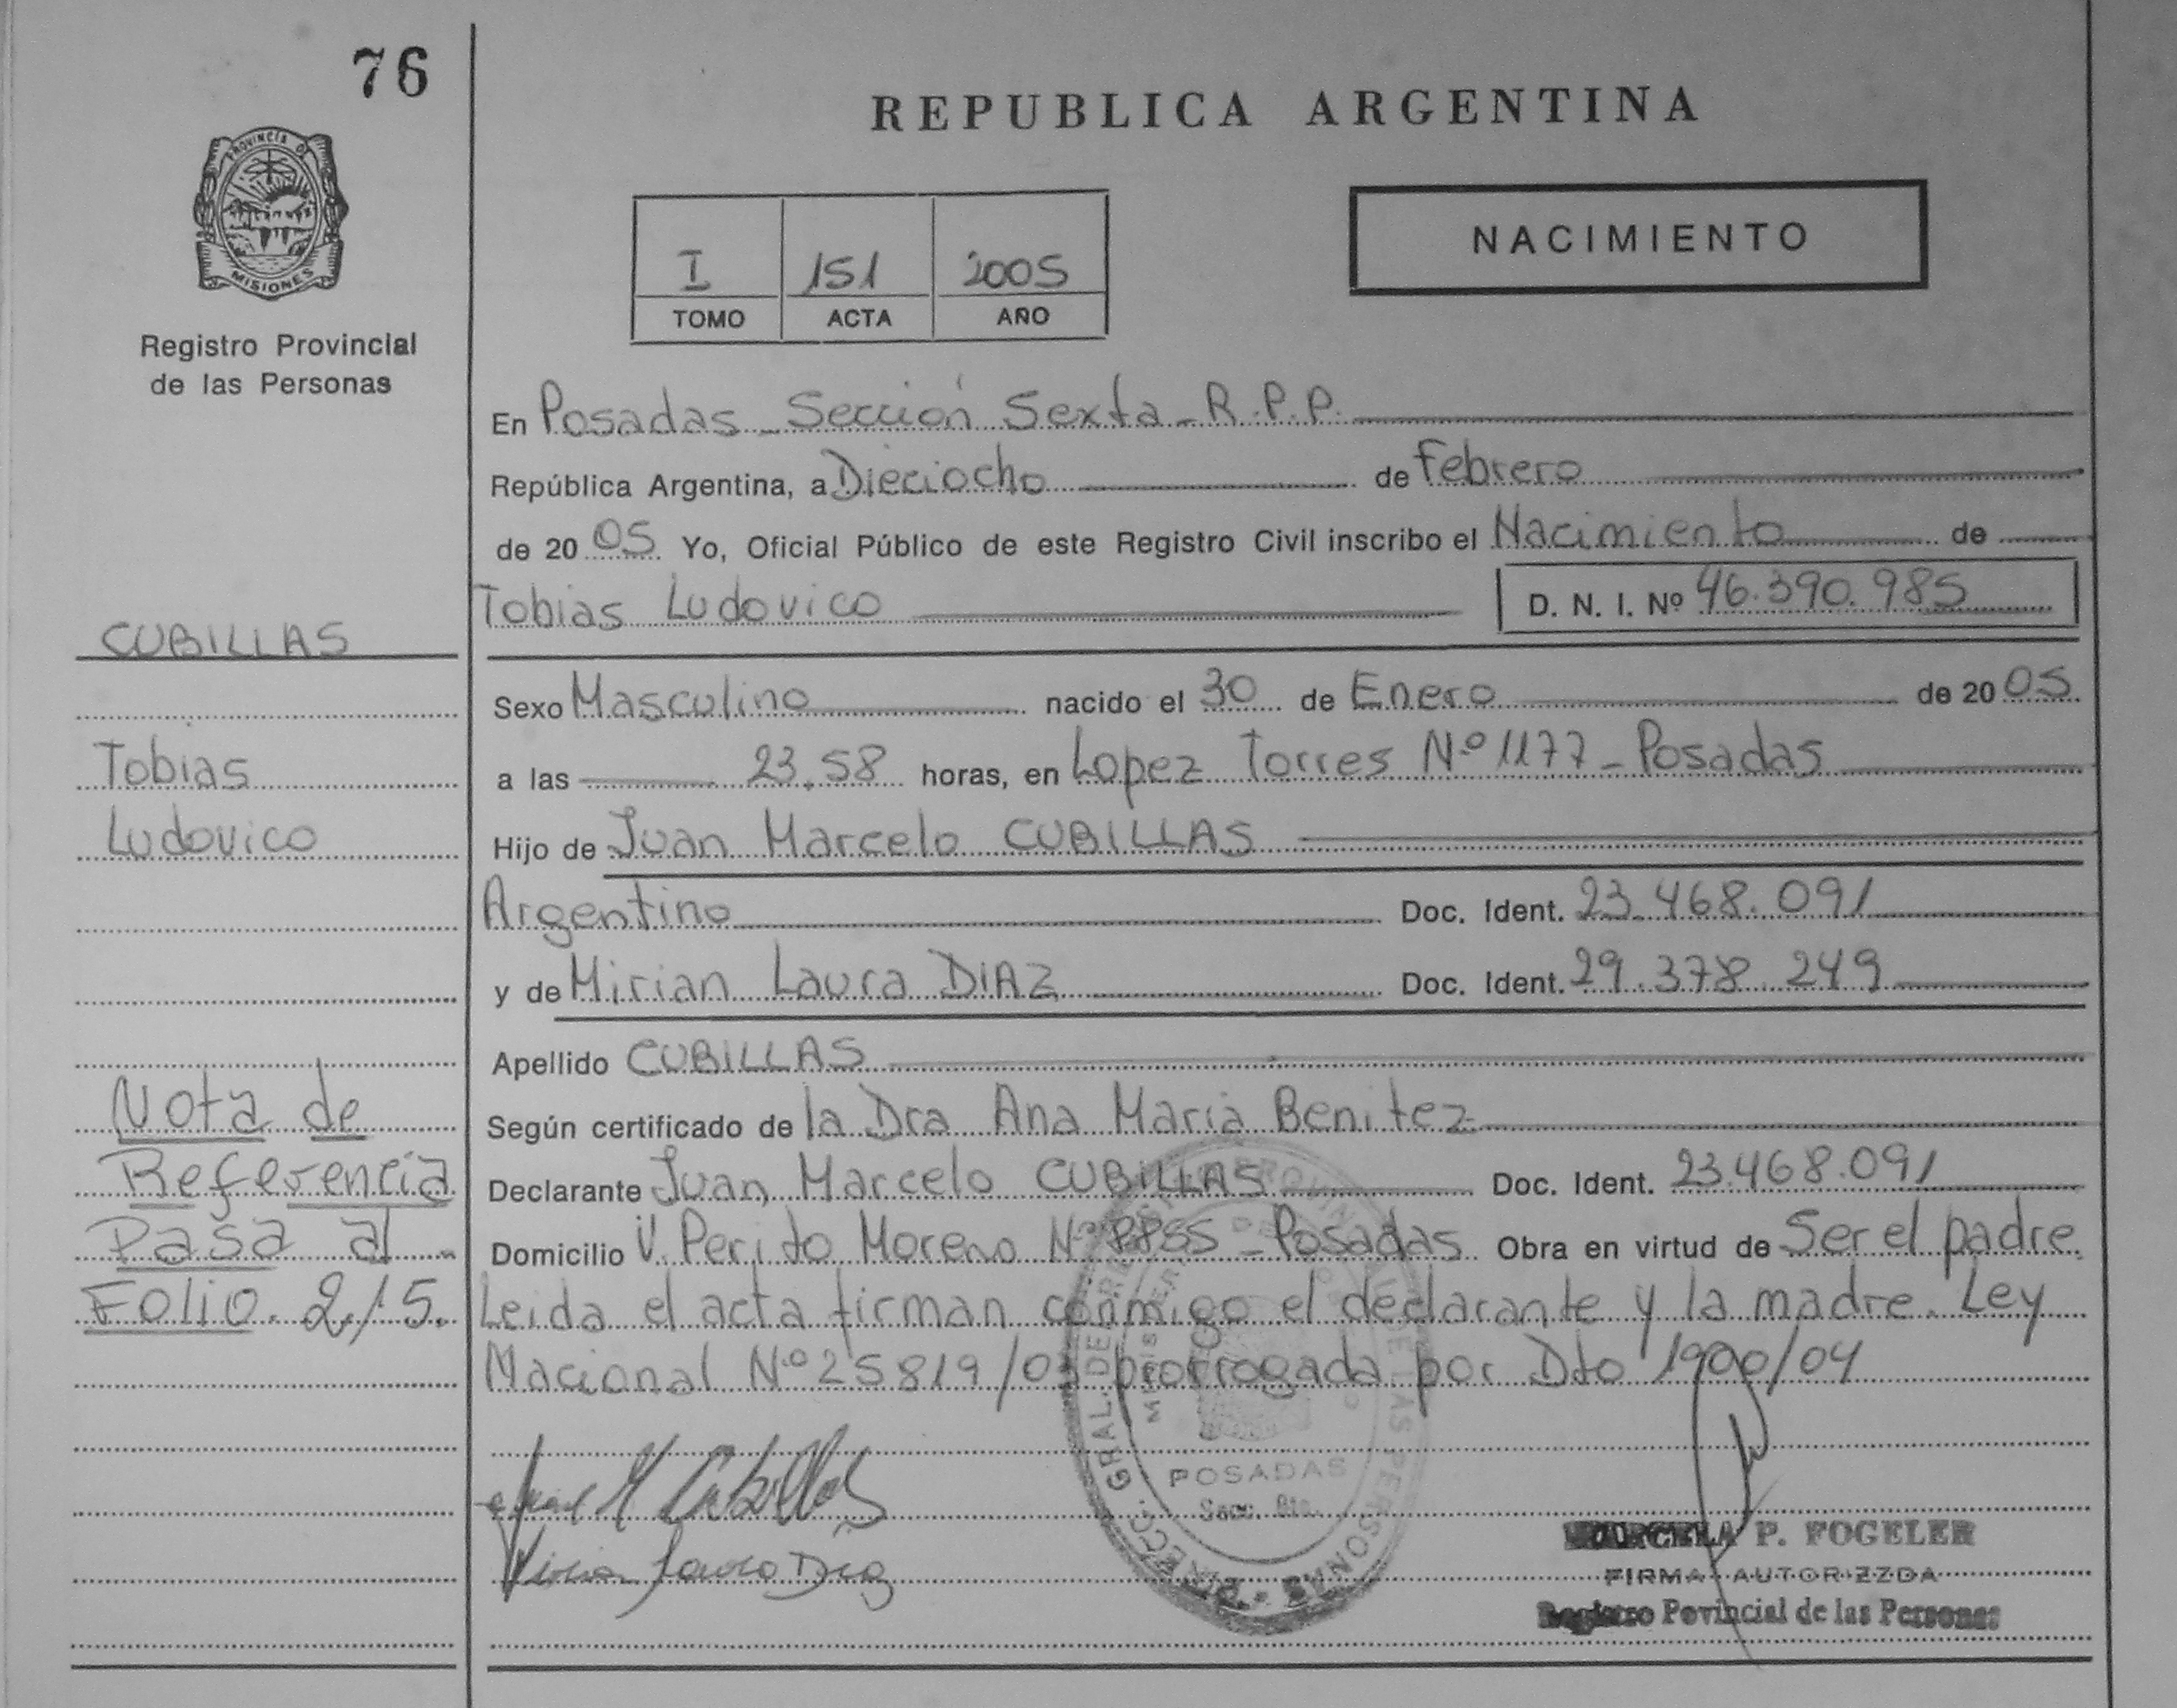 76
REPUBLICA ARGENTINA
PROVINCIA D
MISIONES
Registro Provincial
de las Personas
NACIMIENTO
I 151 2005
TOMO ACTA AÑO
En Posadas - Sección Sexta - R.P.P.
República Argentina, a Dieciocho de Febrero
de 20 05 Yo, Oficial Público de este Registro Civil inscribo el Nacimiento de
Tobias Ludovico D. N. I. Nº 46.390.985
CUBILLAS
Sexo Masculino nacido el 30 de Enero de 20 05
Tobias
a las 23.58 horas, en Lopez Torres Nº 1177 - Posadas
Ludovico
Hijo de Juan Marcelo CUBILLAS
Argentino Doc. Ident. 23.468.091
y de Mirian Laura DIAZ Doc. Ident. 29.378.249
Apellido CUBILLAS
Nota de
Referencia
Pasa al
Folio. 215.
Según certificado de la Dra Ana Maria Benitez
Declarante Juan Marcelo CUBILLAS Doc. Ident. 23.468.091
Domicilio V. Perito Moreno Nº Posadas Obra en virtud de Ser el padre.
Leida el acta firman conmigo el declarante y la madre. Ley
Nacional Nº 25819/03 prorrogada por Dto 1900/04
Juan M Cubillas
Mirian Laura Diaz
POSADAS
Secc. 6ta.
MARCELA P. FOGELER
FIRMA AUTORIZZDA
Registro Povincial de las Personas